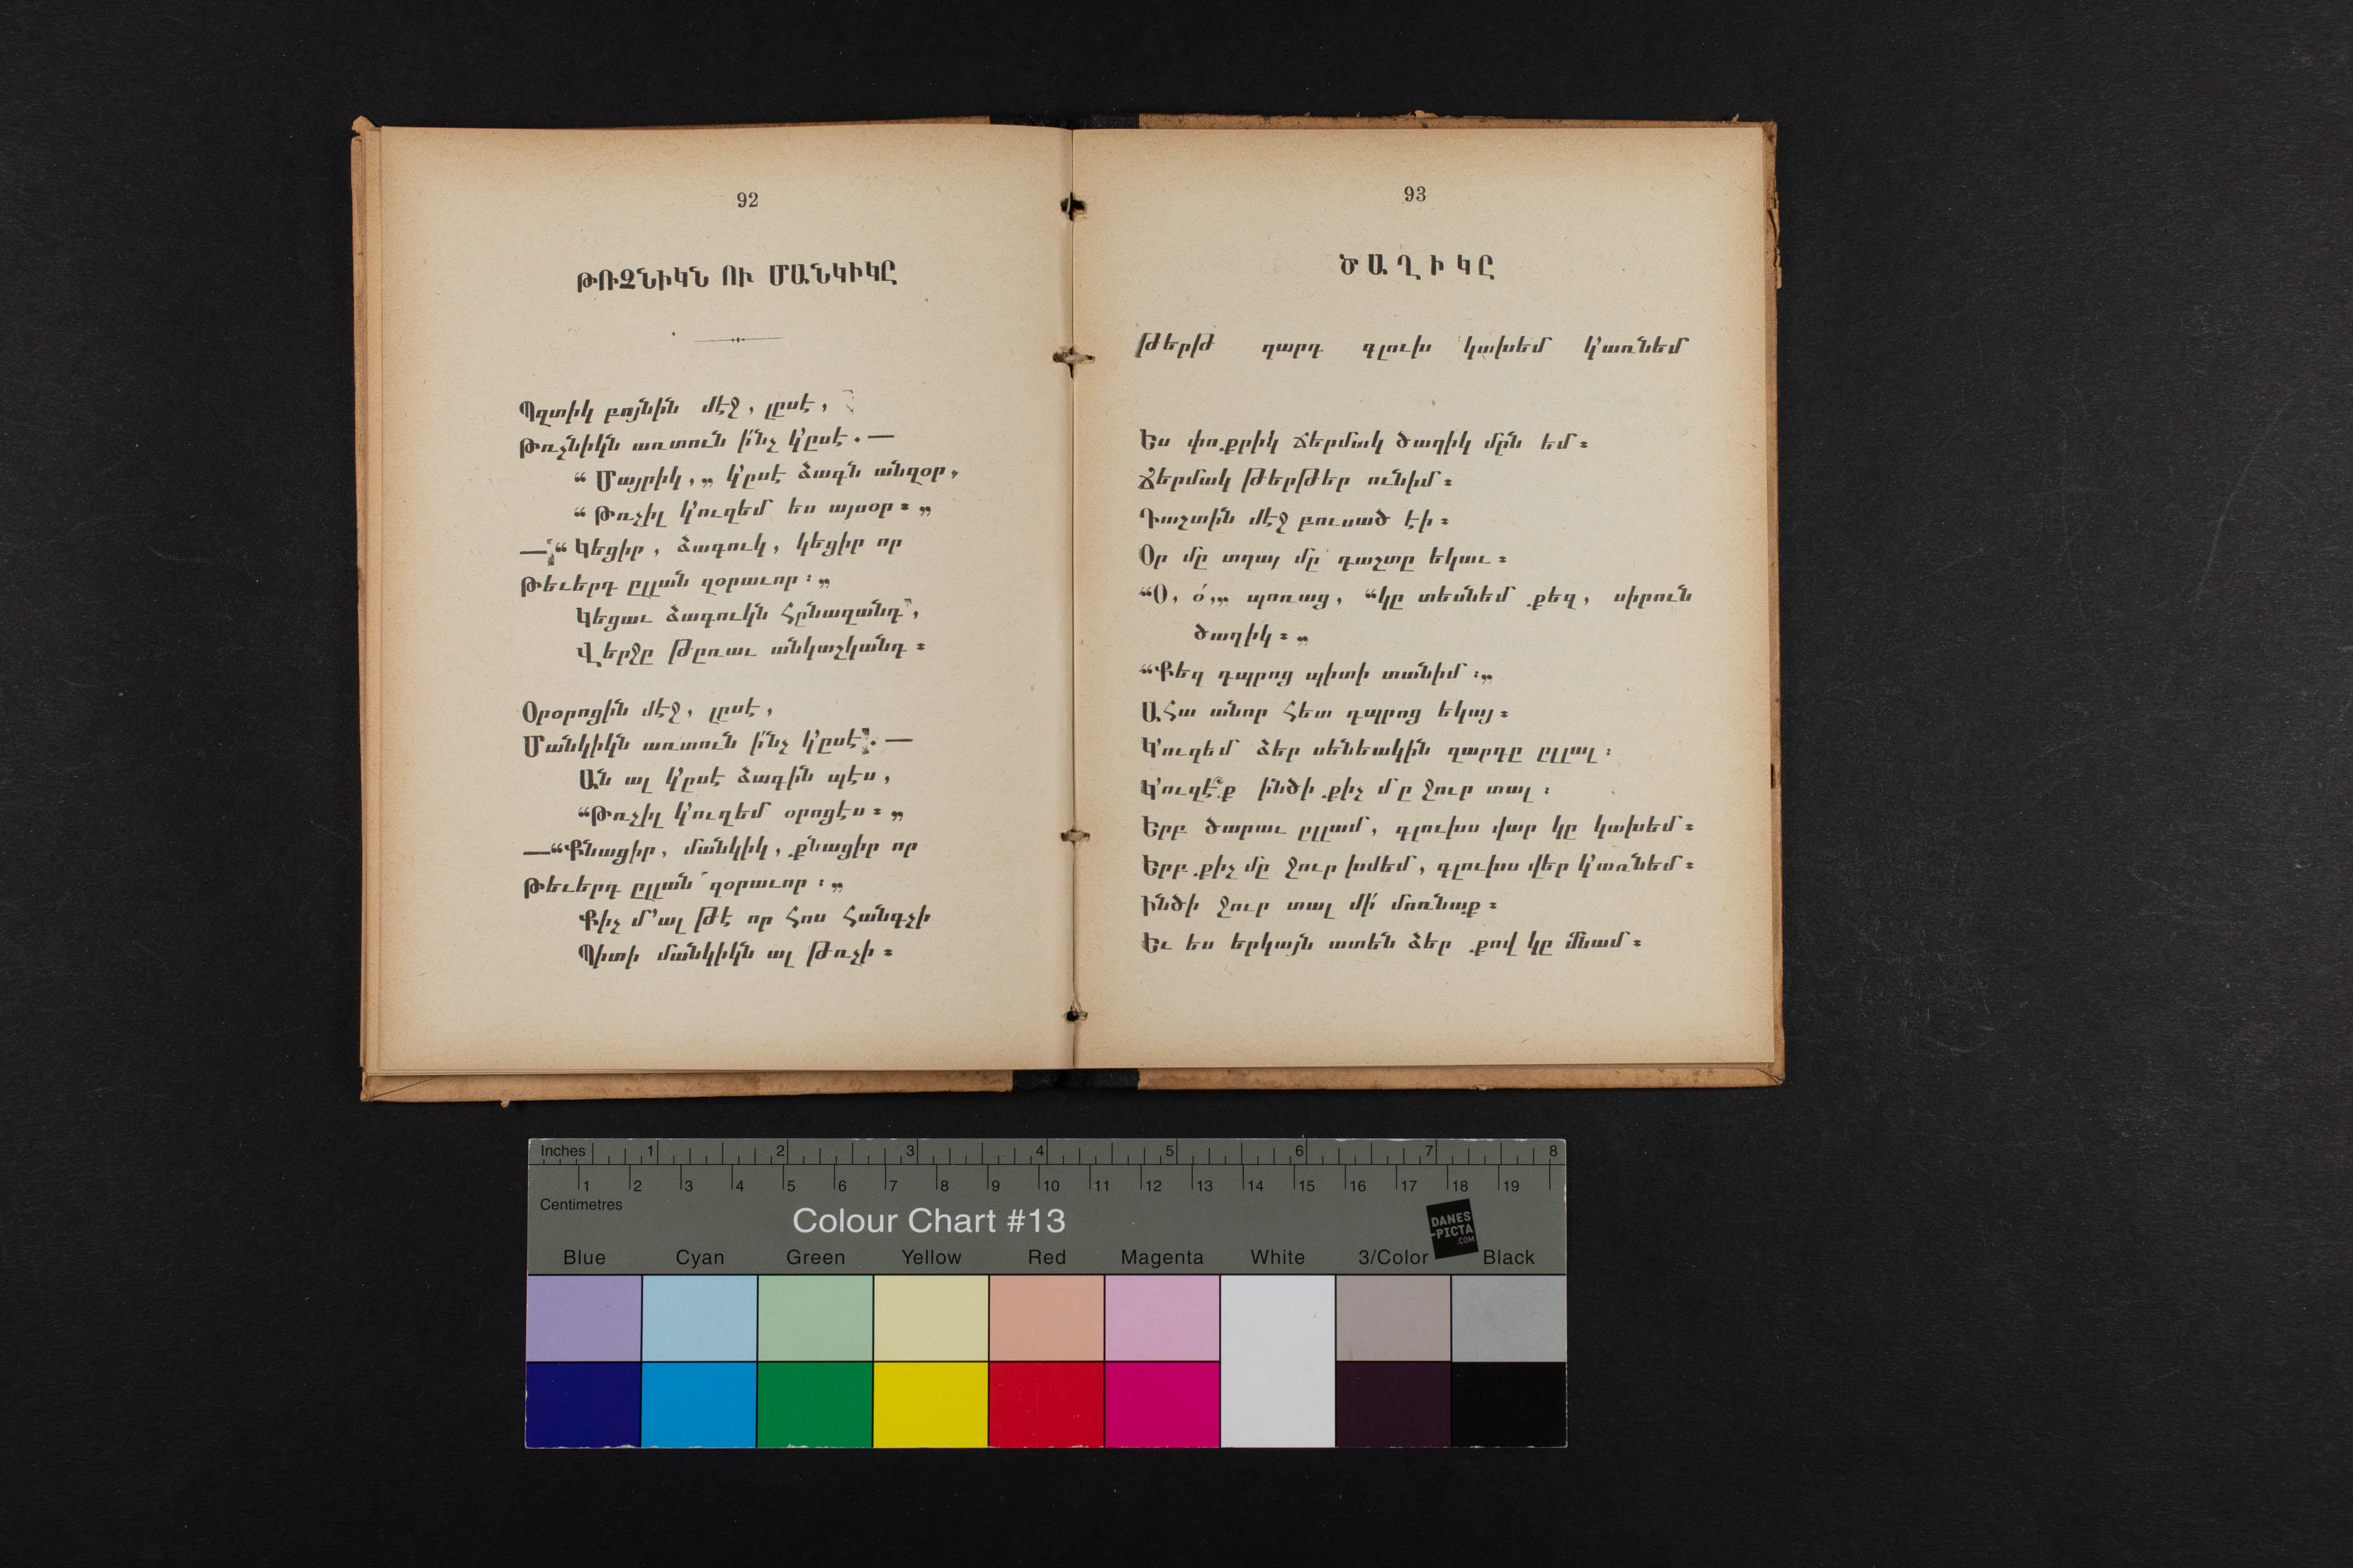 92
ԹՌՉՆԻԿՆ ՈՒ ՄԱՆԿԻԿԸ
Պզտիկ բոյնին մէջ, լըսէ,
Թռչնիկն առտուն ի՛նչ կ՚ըսէ.—
“Մայրիկ,„ կ՚ըսէ ձագն անզօր,
“Թռչիլ կ՚ուզեմ ես այսօր։„
—“Կեցիր, ձագուկ, կեցիր որ
Թեւերդ ըլլան զօրաւոր։„
Կեցաւ ձագուկն հընազանդ,
Վերջը թըռաւ անկաշկանդ։
Օրօրոցին մէջ, լըսէ,
Մանկիկն առտուն ի՛նչ կ՚ըսէ.—
Ան ալ կ՚ըսէ ձագին պէս,
“Թռչիլ կ՚ուզեմ օրոցէս։„
—“Քնացիր, մանկիկ, քնացիր որ
Թեւերդ ըլլան զօրաւոր։„
Քիչ մ՚ալ թէ որ հոս հանգչի
Պիտի մանկիկն ալ թռչի։
93
ԾԱՂԻԿԸ
թերթ զարդ գլուխ կախեմ կ՚առնեմ
Ես փոքրիկ ճերմակ ծաղիկ մըն եմ։
Ճերմակ թերթեր ունիմ։
Դաշտին մէջ բուսած էի։
Օր մը տղայ մը դաշտը եկաւ։
“Օ, օ՛,„ պոռաց, “կը տեսնեմ քեզ, սիրուն
ծաղիկ։„
“Քեզ դպրոց պիտի տանիմ։„
Ահա անոր հետ դպրոց եկայ։
Կ՚ուզեմ ձեր սենեակին զարդը ըլլալ։
Կ՚ուզէ՞ք ինծի քիչ մը ջուր տալ։
Երբ ծարաւ ըլլամ, գլուխս վար կը կախեմ։
Երբ քիչ մը ջուր խմեմ, գլուխս վեր կ՚առնեմ։
Ինծի ջուր տալ մի՛ մոռնաք։
Եւ ես երկայն ատեն ձեր քով կը մնամ։
Inches 1 2 3 4 5 6 7 8
1 2 3 4 5 6 7 8 9 10 11 12 13 14 15 16 17 18 19
Centimetres
Colour Chart #13
DANES
-PICTA
.COM
Blue Cyan Green Yellow Red Magenta White 3/Color Black